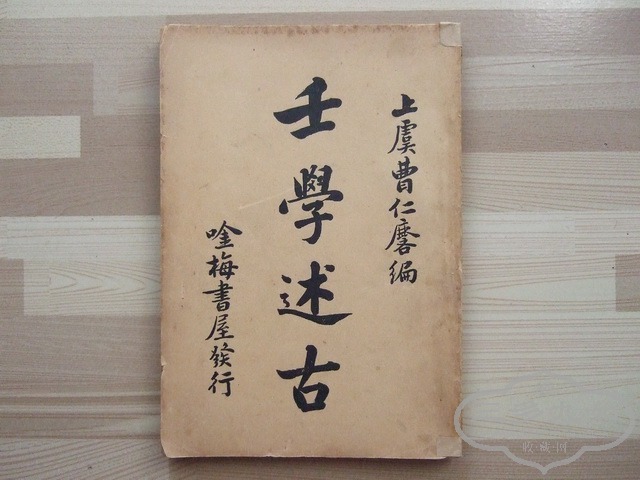 上虞曹仁麐編
壬學述古
唫梅書屋發行
收·藏·网